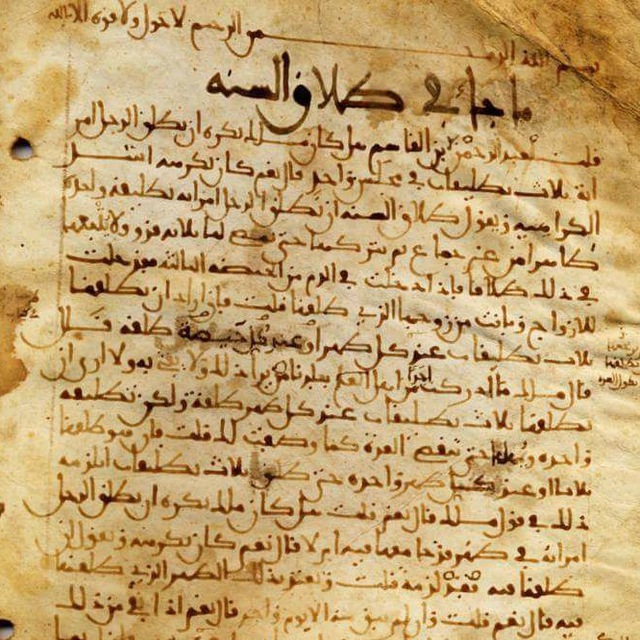 بسم الله الرحمن الرحيم لا حول ولا قوة إلا بالله
ما جا في طلاق السنه
قلت لعبد الرحمن بن القاسم هل كان مالك يكره ان يطلق الرجل امر
اته ثلاث تطليقات في مجلس واحد قال نعم كان يكرهه اشد
الكراهيه ويقول طلاق السنه ان يطلق الرجل امراته تطليقه واحدة
طاهرا من غير جماع ثم يتركها حتى يمضي لها ثلاثه قروء ولا يتبعها
في ذلك طلاقا فاذا دخلت في الدم من الحيضه الثالثه فقد حلت
للازواج وبانت من زوجها الذي طلقها قلت فان اراد ان يطلقها
ثلاث تطليقات عند كل طهر او عند كل حيضة طلقه قال
قال مالك ما ادركت احدا من اهل بلدنا يرى ذلك ولا يفتي به ولا ارى ان
يطلقها ثلاث تطليقات عند كل طهر طلقه ولكن تطليقه
واحده ويمهل حتى تنقضي العده كما وصفت لك قلت فان هو طلقها
ثلاثا او عند كل طهر واحده حتى طلق ثلاث تطليقات ايلزمه
ذلك في قول مالك قال نعم قلت هل كان مالك يكره ان يطلق الرجل
امراته في طهر قد جامعها فيه ام لا قال نعم كان يكرهه ويقول ان
طلقها فيه فقد لزمه قلت وتعتد بذلك الطهر الذي طلقها
فيه قال نعم قلت وان لم يبق منه الا يوم واحد قال نعم اذا بقي من ذلك